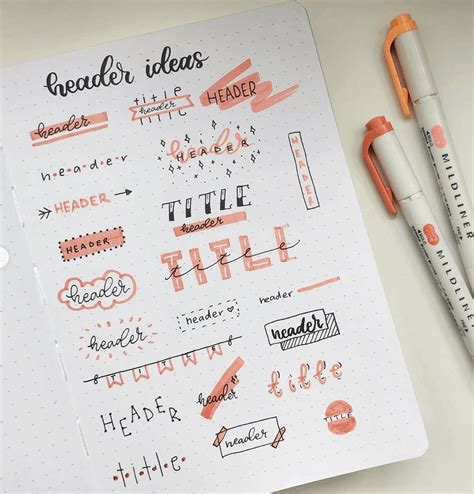 header ideas
header
title
header
HEADER
header
header
HEADER
HEADER
HEADER
TITLE
header
HEADER
TITLE
title
header
header
header
header
header
HEADER
header
title
TITLE
header
title
MILDLINER
MILDLINER